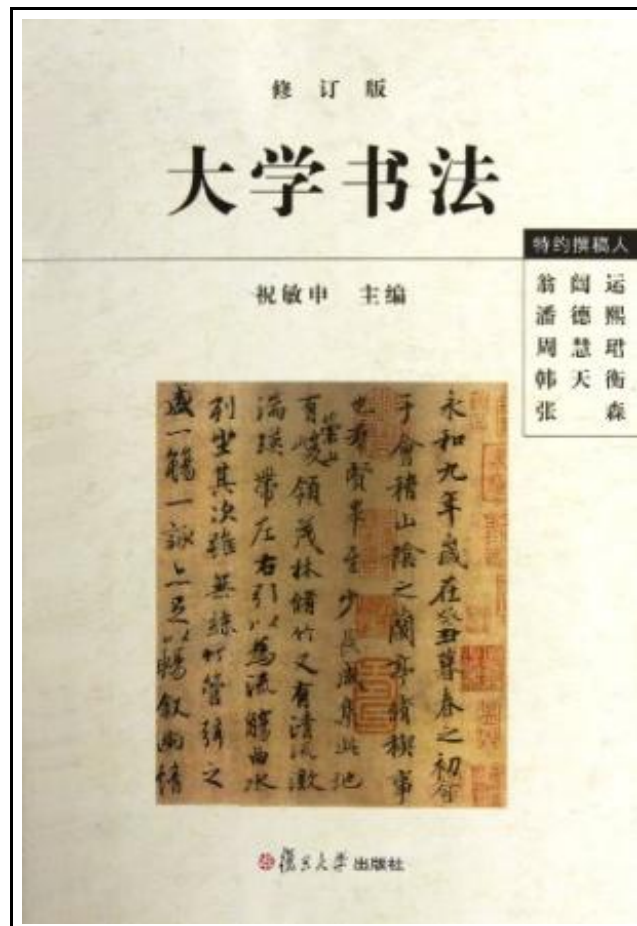 修订版
大学书法
祝敏申 主编
特约撰稿人
翁闿运
潘德熙
周慧珺
韩天衡
张森
永和九年歲在癸丑暮春之初會
于會稽山陰之蘭亭脩禊事
也羣賢畢至少長咸集此地
有崇山峻領茂林脩竹又有清流激
湍暎帶左右引以為流觴曲水
列坐其次雖無絲竹管弦之
盛一觴一詠亦足以暢敘幽情
復旦大学出版社